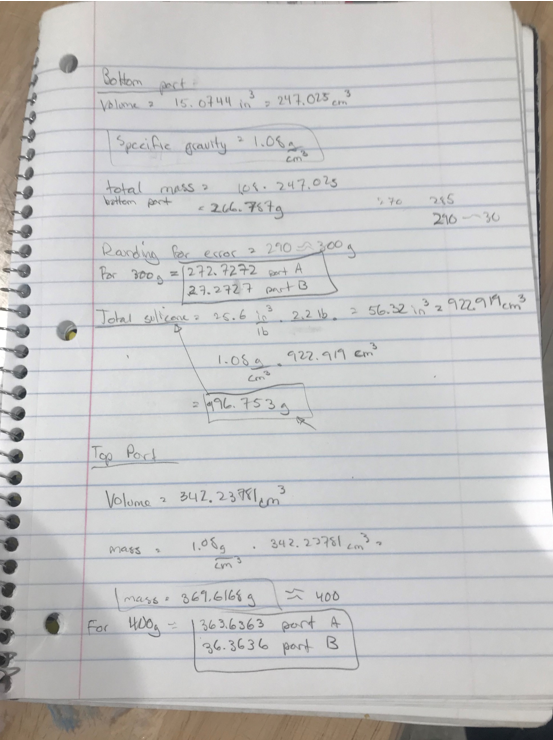 Bottom part
Volume = 15.0744 in³ = 247.025 cm³
Specific gravity = 1.08 g/cm³
total mass = 108. 247.025
bottom part = 266.787g
290 — 30
for error = 290 ≈ 300 g
For 300g = 272.7272 part A
27.2727 part B
Total silicone = 25.6 in³/lb . 2.2 lb. = 56.32 in³ = 922.919 cm³
1.08 g/cm³ . 922.919 cm³
= 996.753 g
Top Part
Volume = 342.23781 cm³
mass = 1.08 g/cm³ . 342.23781 cm³ =
mass = 369.6168 g ≈ 400
For 400g = 363.6363 part A
36.3636 part B